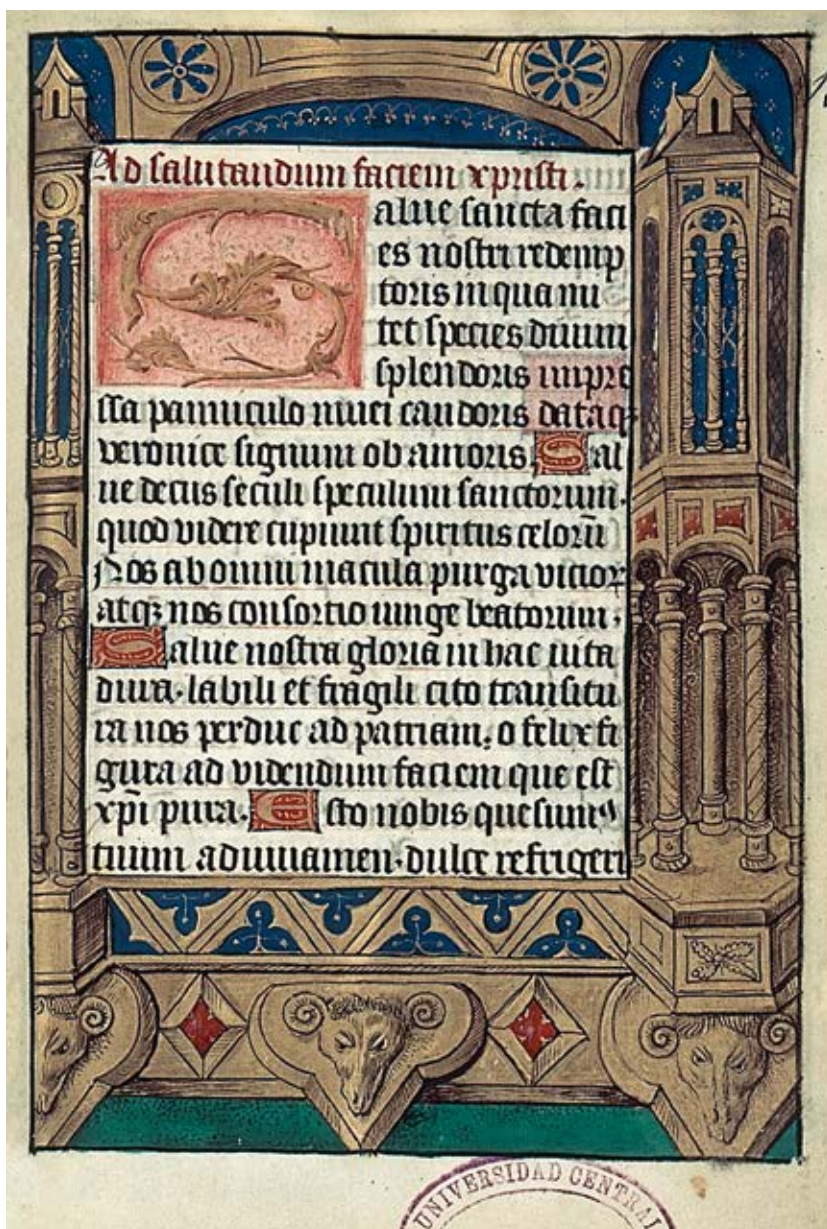 Ad salutandum faciem xpristi.
Salue sancta faci
es nostri redemp
toris in qua ni
tet species diuini
splendoris impre
ssa panniculo niuei candoris dataq3
veronice signum ob amoris Sal
ue decus seculi speculum sanctorum.
quod videre cupiunt spiritus celorū
Nos ab omni macula purga vicior
atq3 nos consortio iunge beatorum.
Salue nostra gloria in hac uita
dura. labili et fragili cito transitu
ra nos perduc ad patriam. o felix fi
gura ad videndum faciem que est
xp̄i pura. Esto nobis quesumꝰ
tuum adiuuamen. dulce refrigeri
UNIVERSIDAD CENTRAL